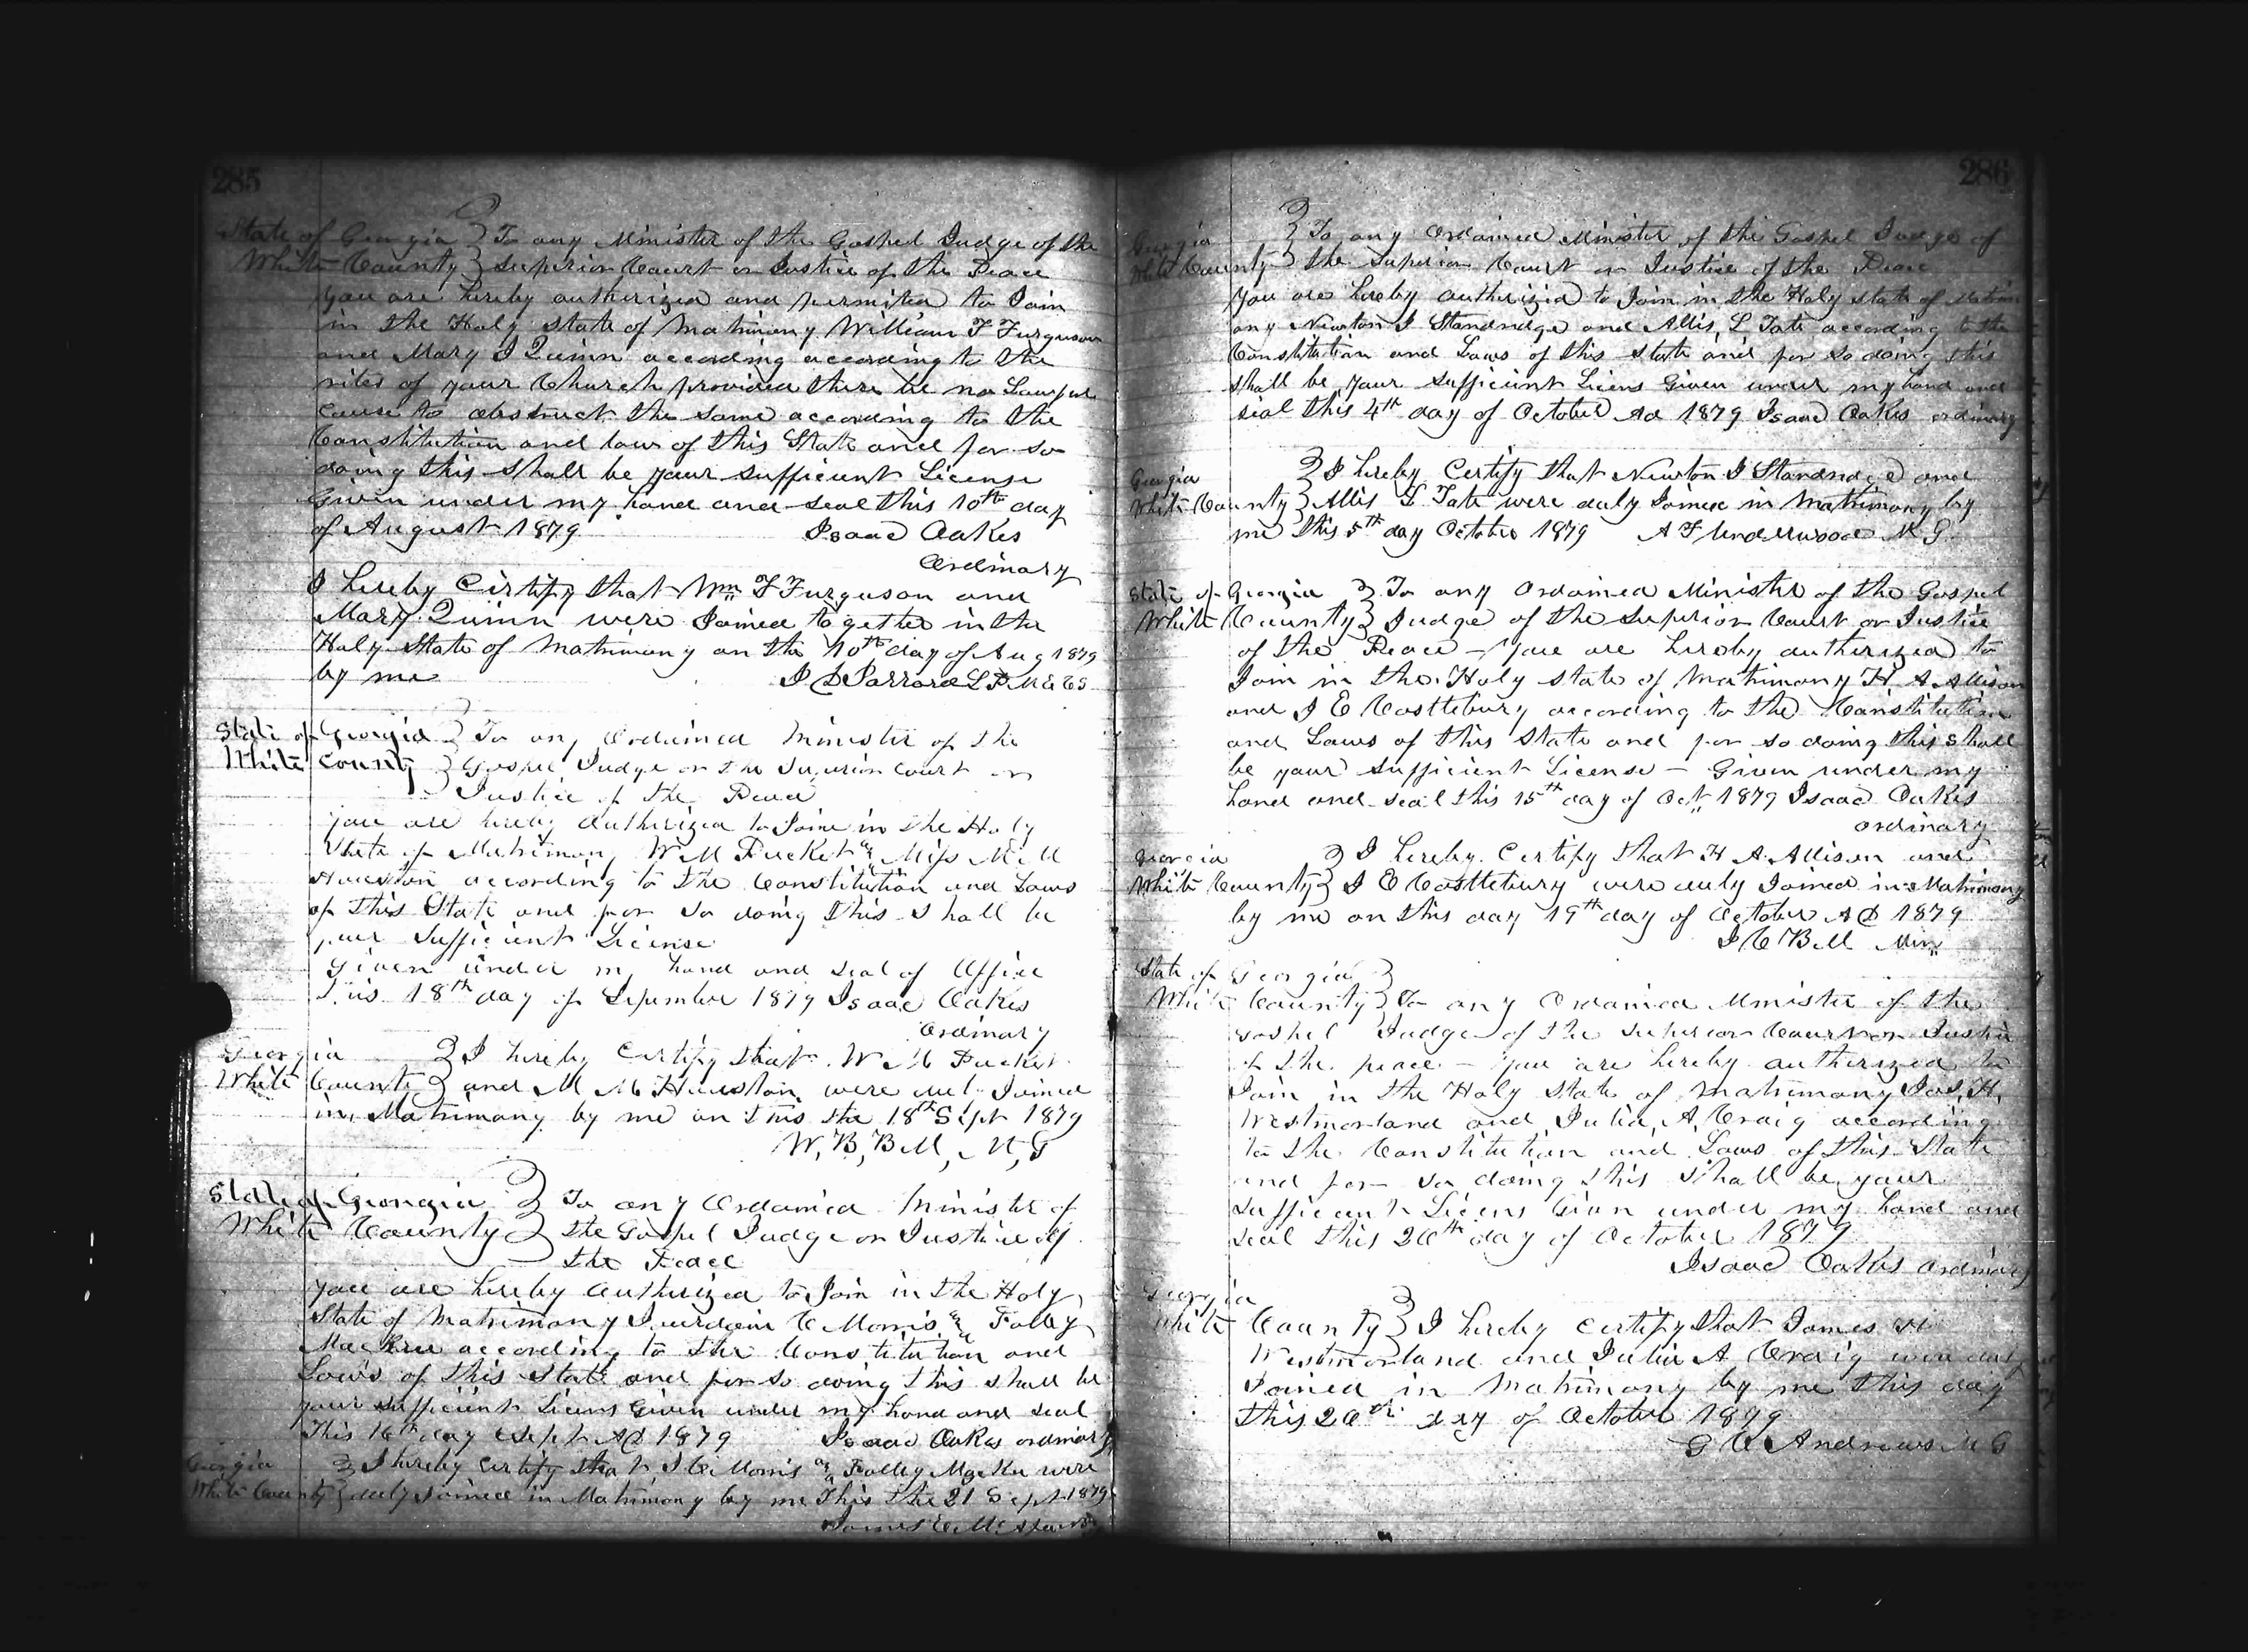 285
State of Georgia } To any Minister of the Gospel Judge of the
White County } Superior Court or Justice of the Peace
You are hereby authorized and permited to Join
in the Holy state of Matrimony William F Furguson
and Mary J Quinn according according to the
rites of your Church provided there be no Lawful
cause to obstruct the same according to the
Constitution and laws of this State and for so
doing this shall be your sufficient License
Given under my hand and seal this 10th day
of August 1879 Isaac Oakes
Ordinary
I hereby Certify that Wm F Furguson and
Mary Quinn were Joined together in the
Holy State of Matrimony on the 10th day of Aug 1879
by me
State of Georgia } To any Ordained Minister of the
White County } Gospel Judge or the Superior Court or
Justice of the Peace
you are hereby authorized to Joine in the Holy
State of Matrimony W M Pucket & Miss M M
Houston according to the Constitution and Laws
of this State and for so doing this shall be
your Sufficient License
Given under my hand and seal of office
This 18th day of September 1879 Isaac Oakes
Ordinary
Georgia } I hereby Certify that W M Pucket
White County } and M M Houston were duly Joined
in Matrimony by me on this the 18th Sept 1879
W, B, Bell, M, G
State of Georgia } To any Ordained Minister of
White County } the Gospel Judge or Justice of
the Peace
you are hereby authorized to Join in the Holy
State of Matrimony C Morris & Polley
according to the Constitution and
Laws of this State and for so doing this shall be
your sufficient Licens Given under my hand and seal
This 16th day Sept AD 1879 Isaac Oakes ordinary
Georgia } I hereby Certify that J C Morris & Polley were
White County } duly Joined in Matrimony by me This the 21 Sept 1879
James
286
Georgia } To any Ordained Minister of the Gospel Judge of
White County } the Superior Court or Justice of the Peace
You are hereby authorized to Join in the Holy state of Matrim
ony Newton J Standridge and Allis, L Tate according to the
Constitution and Laws of this State and for so doing this
shall be your sufficient Licens Given under my hand and
seal this 4th day of October Ad 1879 Isaac Oakes ordinary
Georgia } I hereby Certify that Newton J Standridge and
White County } Allis L Tate were duly Joined in Matrimony by
me this 5th day October 1879 A F Underwood M G
State of Georgia } To any Ordained Minister of the Gospel
White County } Judge of the Superior Court or Justice
of the Peace – You are hereby authorized to
Join in the Holy state of Matrimony H. A. Allison
and J E Casttebury according to the Constitution
and Laws of this State and for so doing this shall
be your sufficient License – Given under my
hand and seal this 15th day of Oct 1879 Isaac Oakes
ordinary
Georgia } I hereby Certify that H A Allison and
White County } J E Casttebury were duly Joined in Matrimony
by me on this day 19th day of October AD 1879
J C Bell Min
State of Georgia }
White County } To any Ordained Minister of the
Gospel Judge of the Superior Court or Justice
of the peace – You are hereby authorized to
Join in the Holy State of Matrimony Jas, H,
Westmorland and Julia, A, Craig according
to the Constitution and Laws of this State
and for so doing this shall be your
sufficient Licens Givn under my hand and
seal this 20th day of October 1879
Isaac Oakes Ordinary
Georgia
White County } I hereby certify that James H
Westmorland and Julia A Craig were duly
Joined in Matrimony by me this day
this 20th day of October 1879
G C Andrews M G